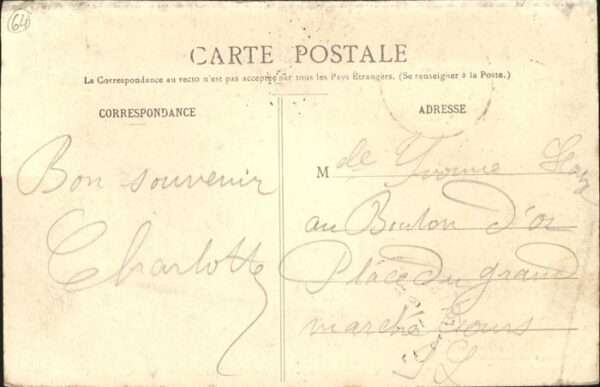 (64)
CARTE POSTALE
La Correspondance au recto n'est pas acceptée par tous les Pays Étrangers. (Se renseigner à la Poste.)
CORRESPONDANCE
ADRESSE
Bon souvenir
Charlotte
M de Yvonne
au Bouton d'or
Place du grand
marché Tours